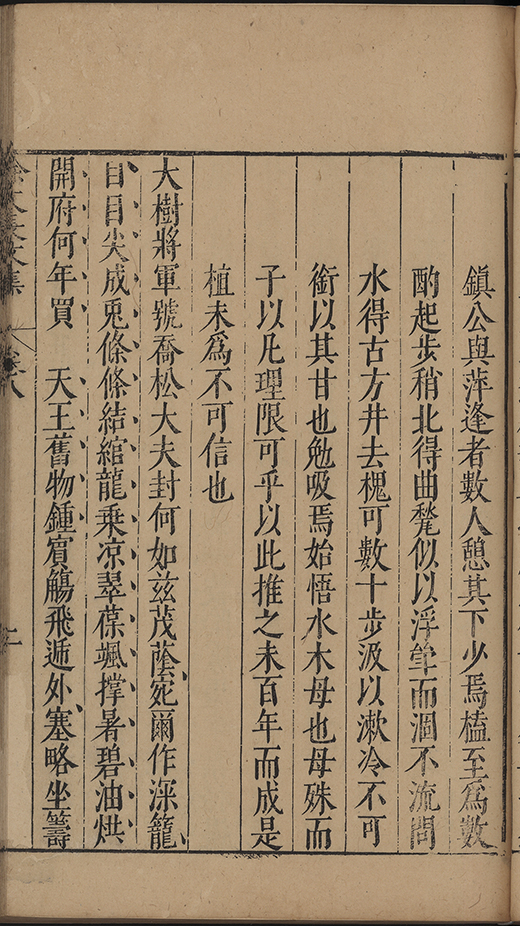 鎮公與萍逢者數人憩其下少焉榼至爲數
酌起步稍北得曲甃似以浮斝而涸不流問
水得古方井去槐可數十步汲以漱冷不可
銜以其甘也勉吸焉始悟水木母也母殊而
子以凡理限可乎以此推之未百年而成是
植未爲不可信也
大樹將軍號喬松大夫封何如兹茂蔭宛爾作深籠
日目尖成兎條條結綰龍乘凉翠葆颯撑暑碧油烘
開府何年買 天王舊物鍾賓觴飛遁外塞略坐籌
文集 卷八
二